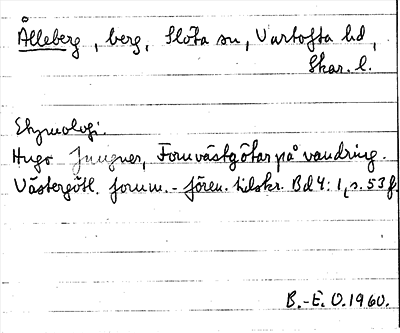 Ålleberg, berg, Slöta sn, Vartofta hd,
Skar. l.
Etymologi.
Hugo Jungner, Fornvästgötar på vandring.
Västergötl. fornm.-fören. tidskr. Bd 4: 1, s. 53 f.
B.-E. O. 1960.